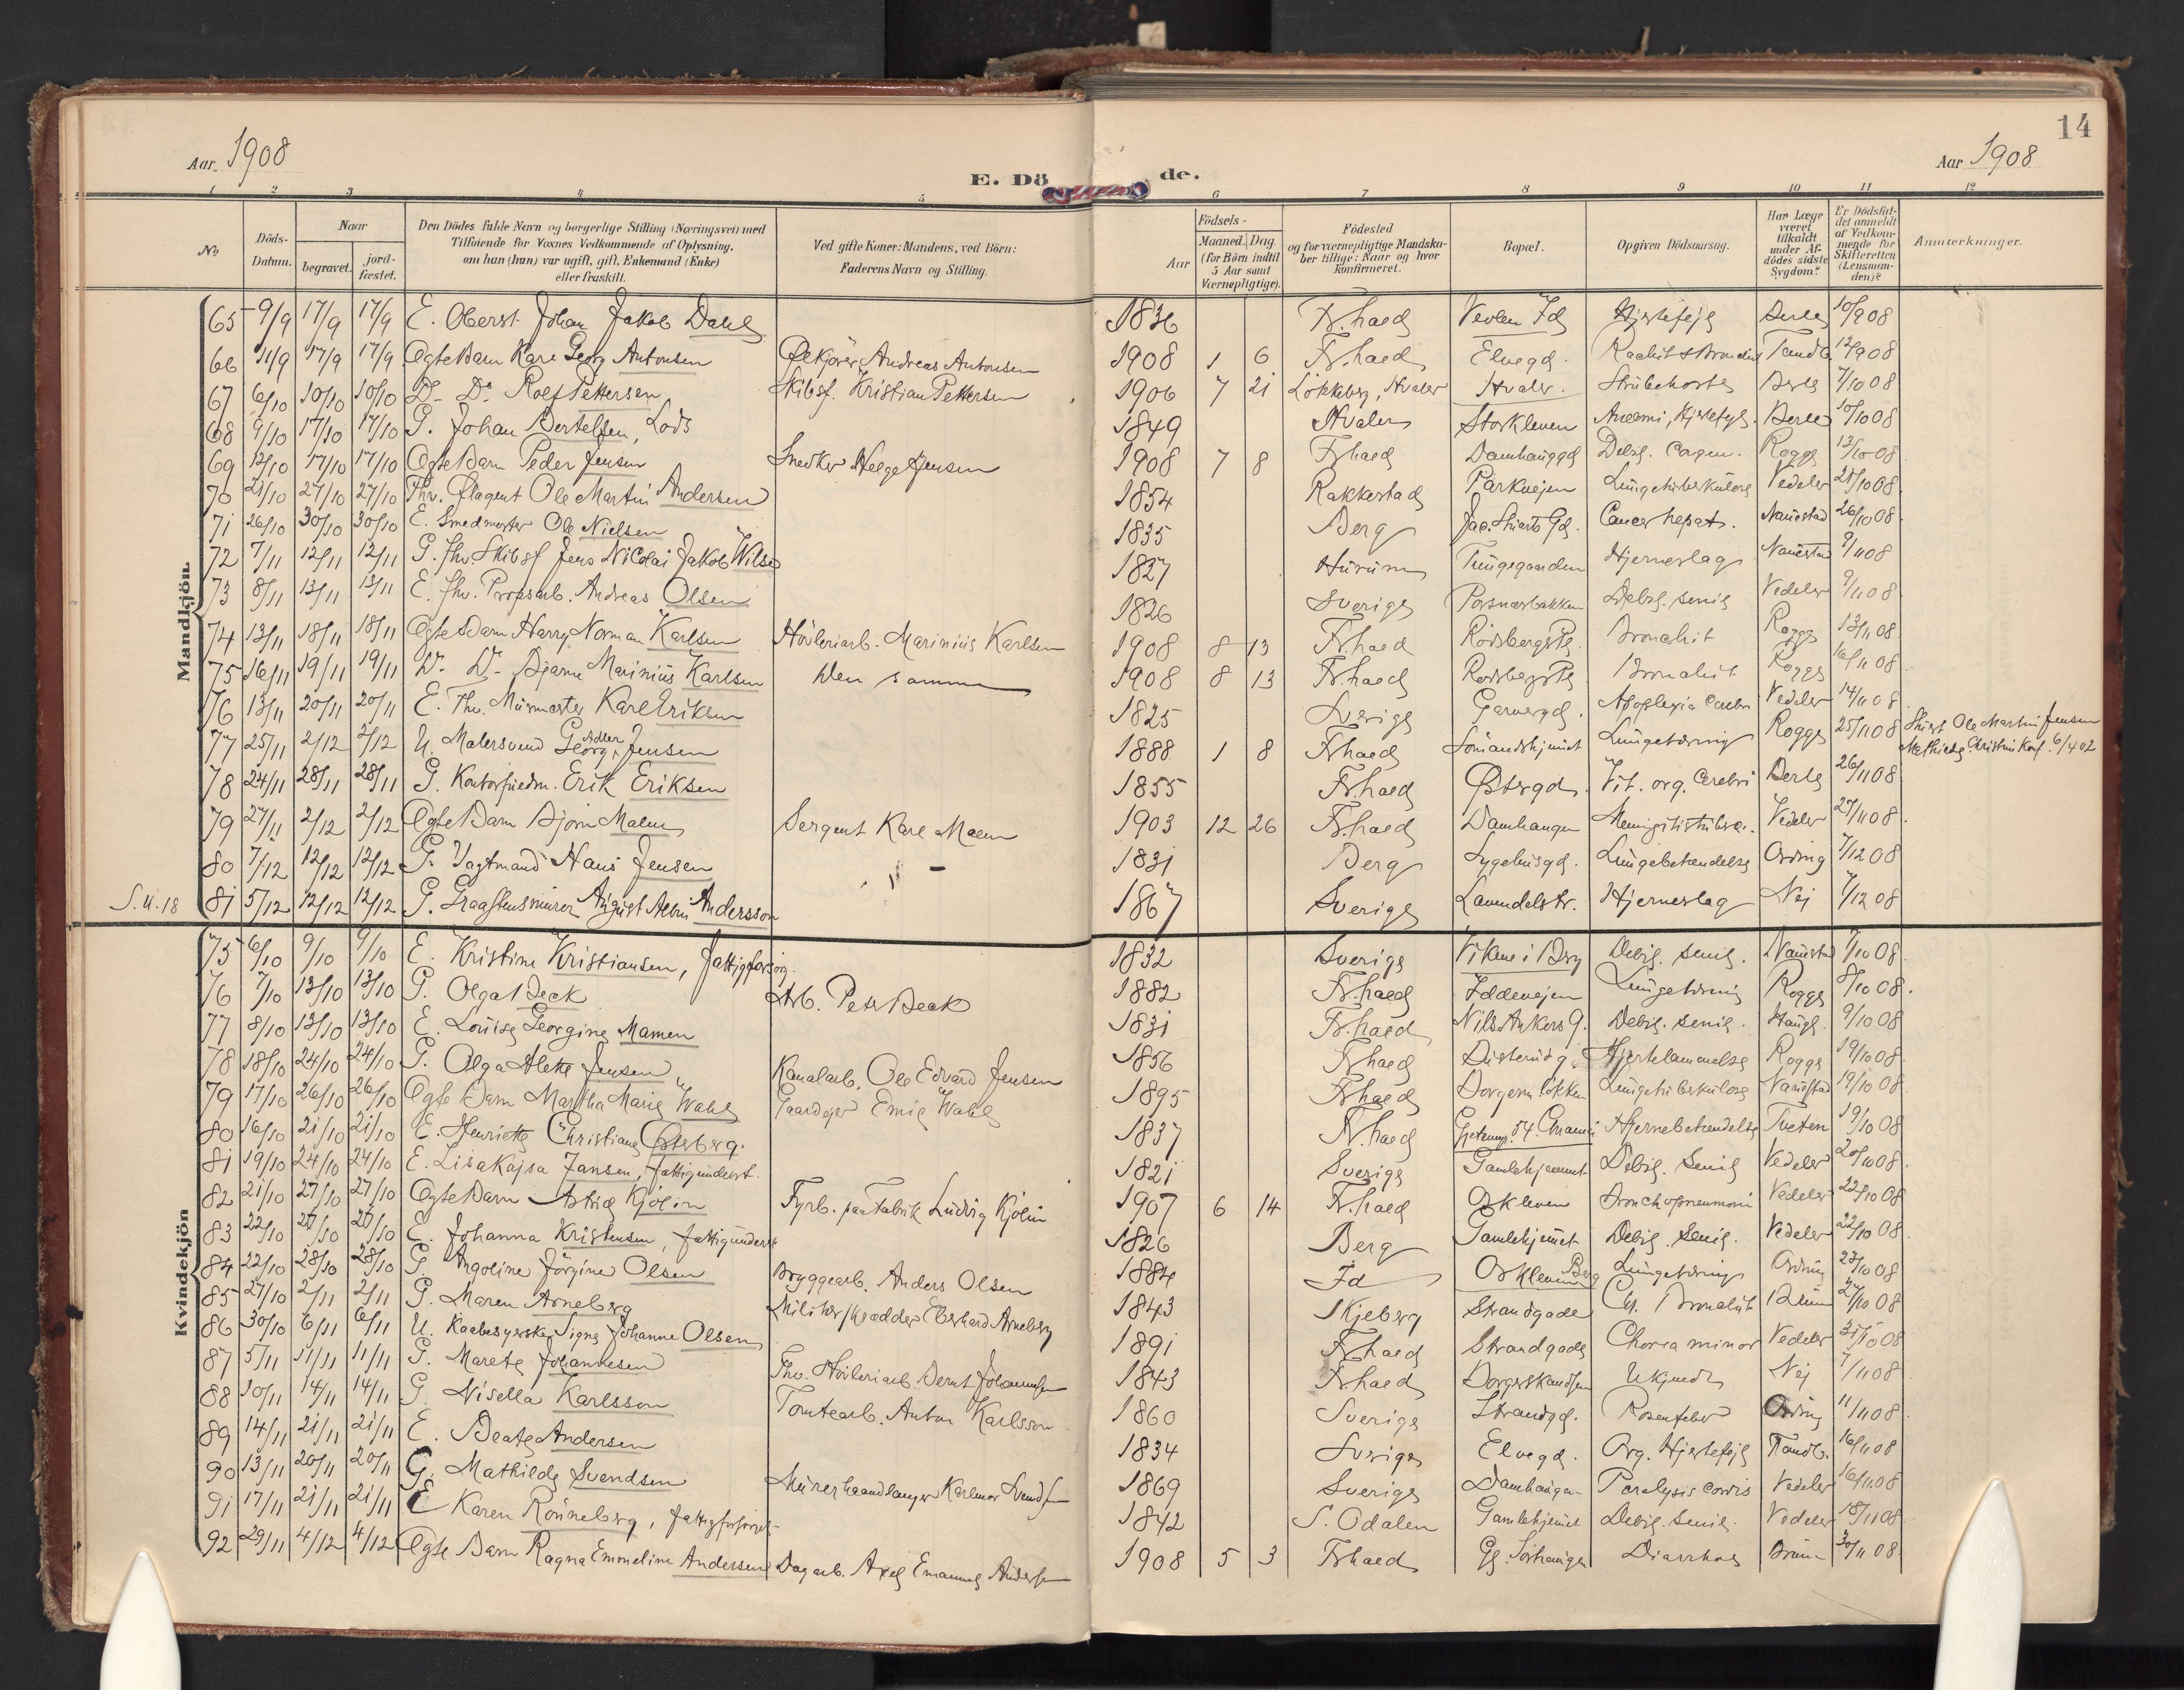 14
Aar 1908
Aar 1908
E. Dö de.
1 2 3 4 5 6 7 8 9 10 11 12
No
Döds-Datum.
Naar
begravet.
jord-fæstet.
Den Dödes fulde Navn og borgerlige Stilling (Næringsvei) med
Tilföiende for Voxnes Vedkommende af Oplysning,
om han (hun) var ugift, gift, Enkemand (Enke)
eller fraskilt.
Ved gifte Koner: Mandens, ved Börn:
Faderens Navn og Stilling.
Födsels-
Aar
Maaned. Dag.
(for Börn indtil
5 Aar samt
Værnepligtige).
Födested
og for værnepligtige Mandska-
ber tillige: Naar og hvor
konfirmeret.
Bopæl.
Opgiven Dödsaarsag.
Har Læge
været
tilkaldt
under Af-
dödes sidste
Sygdom?
Er Dödsfal-
det anmeldt
af Vedkom-
mende for
Skifteretten
(Lensman-
den)?
Anmærkninger.
Mandkjön.
65 9/9 17/9 17/9 E. Oberst Johan Jakob Dahl 1836 Fr.hald Veden Id Hjertefejl 10/9 08
66 11/9 17/9 17/9 Ægte Barn Karl Georg Antonsen Ølkjører Andreas Antonsen 1908 1 6 Fr.hald Elvegd. Tandb. 12/9 08
67 6/10 10/10 10/10 D. D. Rolf Pettersen Skibsf. Kristian Pettersen 1906 7 21 Lökkeberg, Hvaler Hvaler. Strubehoste 7/10 08
68 9/10 17/10 17/10 G. Johan Bertelsen, Lods 1849 Hvaler Storkleven Anæmi, Hjertefejl. 10/10 08
69 12/10 17/10 17/10 Ægte Barn Peder Jensen Snedker Helge Jensen 1908 7 8 Fr.hald Damhauggd Debil. Congen. Rogge 13/10 08
70 21/10 27/10 27/10 Fhv. Ølagent Ole Martin Andersen 1854 Rakkestad Parkvejen Lungetuberkulose Vedeler 21/10 08
71 26/10 30/10 30/10 E. Smedmester Ole Nielsen 1835 Berg Jac. Stuarts Gd. Cancer hepat. Nauestad 26/10 08
72 7/11 12/11 12/11 G. Fhv. Skibsf Jens Nicolai Jakob Wilse 1827 Hurum Tungegaarden Hjerneslag Nauestad 9/11 08
73 8/11 13/11 13/11 E. fhv. Propsarb. Andreas Olsen 1826 Sverige Porsnæsbakken Debil. senil Vedeler 9/11 08
74 13/11 18/11 18/11 Ægte Barn Harry Norman Karlsen Hövleriarb. Marinius Karlsen 1908 8 13 Fr.hald Rödsbergspl. Bronchit Rogge 13/11 08
75 16/11 19/11 19/11 D. D. Bjarne Marinius Karlsen Den samme 1908 8 13 Fr.hald Rödsbergspl. Bronchit Rogge 16/11 08
76 13/11 20/11 20/11 E. Fhv. Murmester Karl Eriksen 1825 Sverige Garvergd. Apoplexia Cerebri Vedeler 14/11 08
77 25/11 2/12 2/12 U. Malersvend Georg Adler Jensen 1888 1 8 Fr.hald Sömandshjemmet Lungetæring Rogge 25/11 08 Ole Martin Jensen
Mathilde Christin Konf. 6/4 02
78 24/11 28/11 28/11 G. Kontorfuldm. Erik Eriksen 1855 Fr.hald Östergd. Vit. org. Cerebri 26/11 08
79 27/11 2/12 2/12 Ægte Barn Björn Malm Sergent Karl Malm 1903 12 26 Fr.hald Damhaugen Vedeler 27/11 08
80 7/12 12/12 12/12 G. Vagtmand Hans Jensen 1831 Berg Sygehusgd. Lungebetændelse Ording 7/12 08
S.U.18 81 5/12 12/12 12/12 G. Graastensmurer August Albin Andersson 1867 Sverige Lavendelstr. Hjerneslag Nej 7/12 08
Kvindekjön
75 6/10 9/10 9/10 E. Kristine Kristiansen, Fattigforsörg. 1832 Sverige Vikene i Berg Debil. senil. Nauestad 7/10 08
76 7/10 13/10 13/10 G. Olga Beck Arb. Peter Beck 1882 Fr.hald Iddevejen Lungetæring Rogge 8/10 08
77 8/10 13/10 13/10 E. Louise Georgine Mamen 1831 Fr.hald Nils Ankers G. Debil. senil. Haugl. 9/10 08
78 18/10 24/10 24/10 G. Olga Alette Jensen Kanalarb. Ole Edvard Jensen 1856 Fr.hald Hjertelammelse Rogge 19/10 08
79 17/10 26/10 26/10 Ægte Barn Martha Marie Wahl Gaardejer Emil Wahl 1895 Fr.hald Lungetuberkulose Nauestad 19/10 08
80 16/10 21/10 21/10 E. Henriette Christiane Österberg. 1837 Fr.hald Hjernebetændelse 19/10 08
81 19/10 24/10 24/10 E. Lisa Kajsa Jansen, fattigunderst. 1821 Sverige Gamlehjemmet Debil. Senil Vedeler 20/10 08
82 21/10 27/10 27/10 Ægte Barn Astrid Kjölin Fyrb. paa Fabrik Ludvig Kjölin 1907 6 14 Fr.hald Orkleven Bronchopneumoni Vedeler 22/10 08
83 22/10 27/10 27/10 E. Johanna Kristensen, fattigunderst 1826 Berg Gamlehjemmet Debil. Senil. Vedeler 22/10 08
84 22/10 28/10 28/10 G. Angoline Jörgine Olsen Bryggearb. Anders Olsen 1884 Id Orkleven Berg Lungetæring Ording 23/10 08
85 27/10 2/11 2/11 G. Maren Arneberg Militærskrædder Eberhard Arneberg 1843 Skjeberg Strandgade Ch. Bronchit 27/10 08
86 30/10 6/11 6/11 U. Kaabesyerske Signe Johanne Olsen 1891 Fr.hald Strandgade Chorea minor Vedeler 31/10 08
87 5/11 11/11 11/11 G. Marete Johannesen Fhv. Hövleriarb. Bernt Johannesen 1843 Fr.hald Borgerskandsen Ukjendt Nej 7/11 08
88 10/11 14/11 14/11 G. Nisella Karlsson Tomtearb. Anton Karlsson 1860 Sverige Strandgd. Rosenfeber Ording 11/11 08
89 14/11 21/11 21/11 E. Beate Andersen 1834 Sverige Elvegd. Org. Hjertefejl Tandb. 16/11 08
90 13/11 20/11 20/11 G. Mathilde Svendsen Murerhaandlanger Karlmor Svendsen 1869 Sverige Damhaugen Paralysis cordis Vedeler 16/11 08
91 17/11 21/11 21/11 E Karen Rönneberg, fattigforsörget 1842 S. Odalen Gamlehjemmet Debil. senil. Vedeler 18/11 08
92 29/11 4/12 4/12 Ægte Barn Ragna Emmeline Andersen Dagarb. Axel Emanuel Andersen 1908 5 3 Fr.hald Gl. Sörhaugen Diarrhoe Bruun 30/11 08